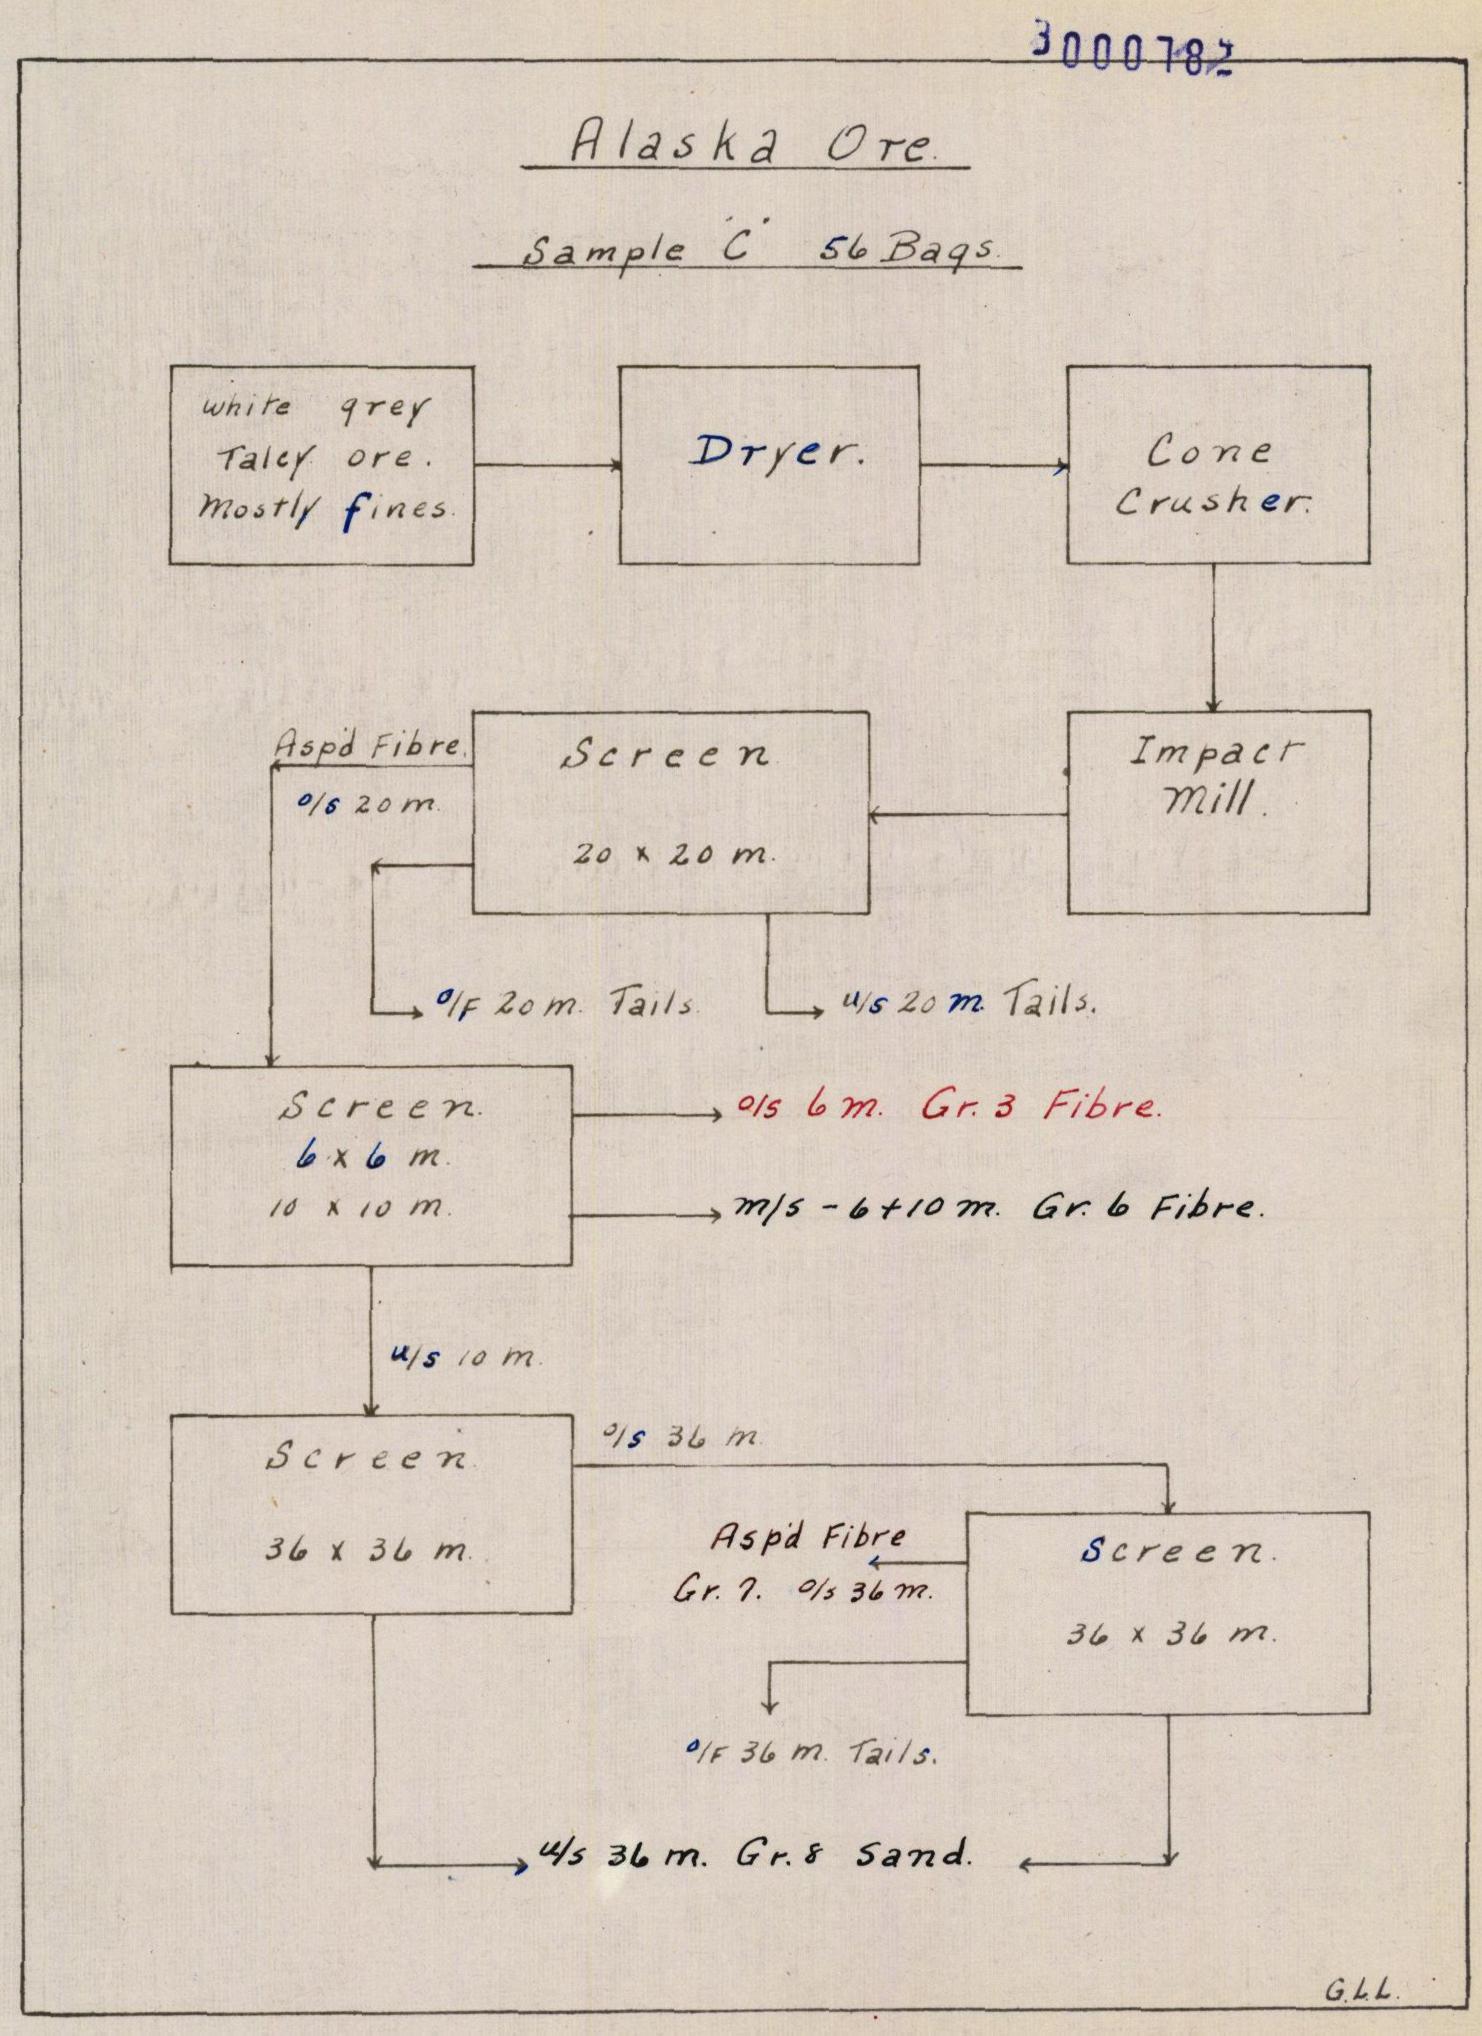 3000782
Alaska Ore.
Sample "C" 56 Bags.
white grey
Talcy ore.
Mostly fines.
Dryer.
Cone
Crusher.
Impact
Mill.
Screen
20 x 20 m.
Asp'd Fibre.
o/s 20 m.
o/F 20 m. Tails.
u/s 20 m. Tails.
Screen.
6 x 6 m.
10 x 10 m.
o/s 6 m. Gr. 3 Fibre.
m/s - 6 + 10 m. Gr. 6 Fibre.
u/s 10 m.
Screen.
36 x 36 m.
o/s 36 m.
Screen.
36 x 36 m.
Asp'd Fibre
Gr. 7. o/s 36 m.
o/F 36 m. Tails.
u/s 36 m. Gr. 8 Sand.
G.L.L.